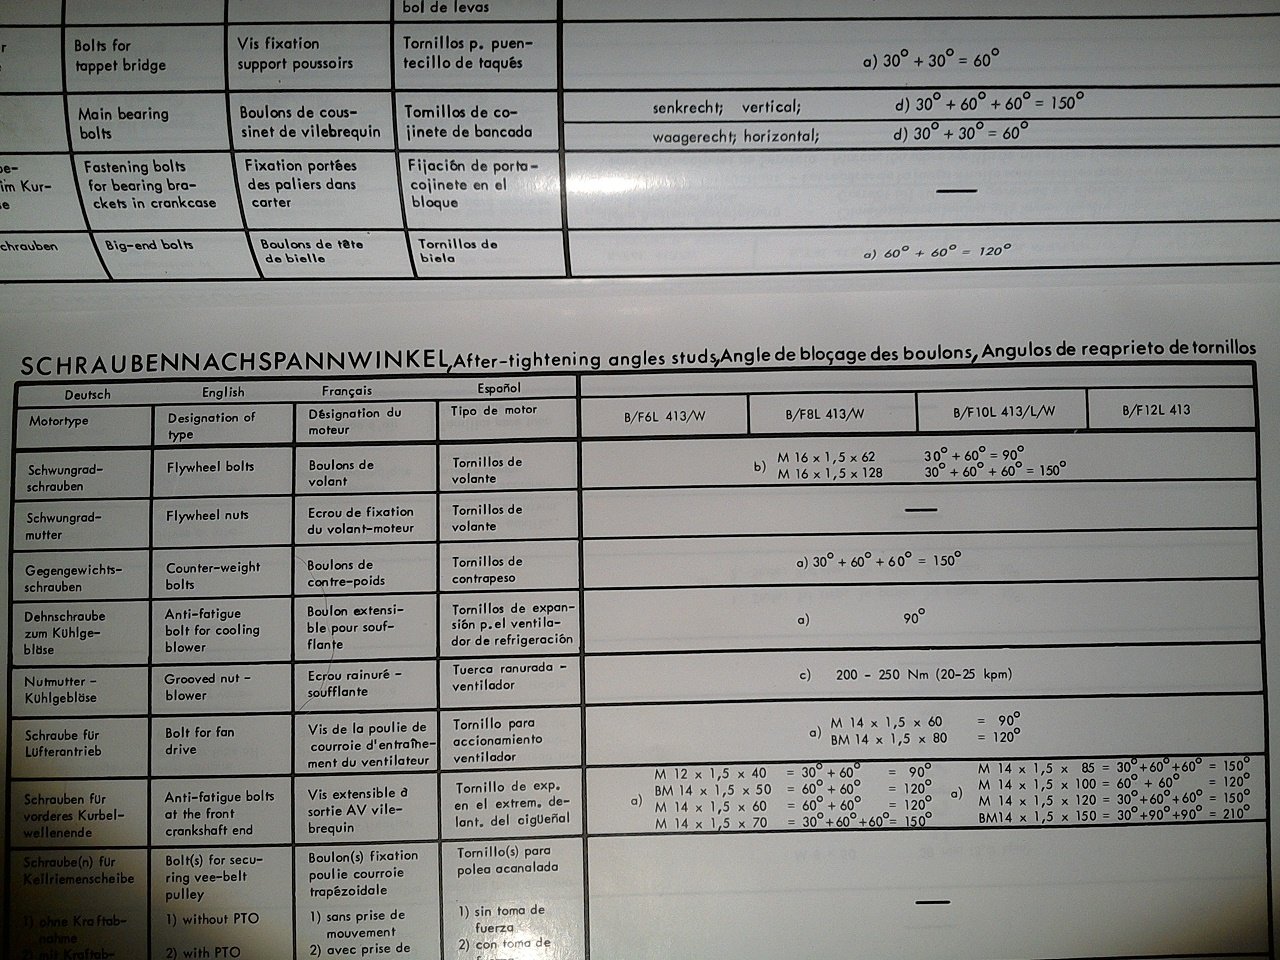 bol de levas
r
Bolts for
tappet bridge
Vis fixation
support poussoirs
Tornillos p. puen-
tecillo de taqués
a) 30° + 30° = 60°
Main bearing
bolts
Boulons de cous-
sinet de vilebrequin
Tomillos de co-
jinete de bancada
senkrecht; vertical; d) 30° + 60° + 60° = 150°
waagerecht; horizontal; d) 30° + 30° = 60°
be-
im Kur-
se
Fastening bolts
for bearing bra-
ckets in crankcase
Fixation portées
des paliers dans
carter
Fijación de porta-
cojinete en el
bloque
—
chrauben
Big-end bolts
Boulons de tête
de bielle
Tornillos de
biela
a) 60° + 60° = 120°
SCHRAUBENNACHSPANNWINKEL, After-tightening angles studs, Angle de bloçage des boulons, Angulos de reaprieto de tornillos
Deutsch English Français Español
Motortype
Designation of
type
Désignation du
moteur
Tipo de motor
B/F6L 413/W B/F8L 413/W B/F10L 413/L/W B/F12L 413
Schwungrad-
schrauben
Flywheel bolts
Boulons de
volant
Tornillos de
volante
b) M 16 x 1,5 x 62 30° + 60° = 90°
M 16 x 1,5 x 128 30° + 60° + 60° = 150°
Schwungrad-
mutter
Flywheel nuts
Ecrou de fixation
du volant-moteur
Tornillos de
volante
—
Gegengewichts-
schrauben
Counter-weight
bolts
Boulons de
contre-poids
Tornillos de
contrapeso
a) 30° + 60° + 60° = 150°
Dehnschraube
zum Kühlge-
bläse
Anti-fatigue
bolt for cooling
blower
Boulon extensi-
ble pour souf-
flante
Tornillos de expan-
sión p.el ventila-
dor de refrigeración
a) 90°
Nutmutter -
Kühlgebläse
Grooved nut -
blower
Ecrou rainuré -
soufflante
Tuerca ranurada -
ventilador
c) 200 - 250 Nm (20-25 kpm)
Schraube für
Lüfterantrieb
Bolt for fan
drive
Vis de la poulie de
courroie d'entraîne-
ment du ventilateur
Tornillo para
accionamiento
ventilador
a) M 14 x 1,5 x 60 = 90°
BM 14 x 1,5 x 80 = 120°
Schrauben für
vorderes Kurbel-
wellenende
Anti-fatigue bolts
at the front
crankshaft end
Vis extensible à
sortie AV vile-
brequin
Tornillo de exp.
en el extrem. de-
lant. del cigüeñal
a) M 12 x 1,5 x 40 = 30° + 60° = 90°
BM 14 x 1,5 x 50 = 60° + 60° = 120°
M 14 x 1,5 x 60 = 60° + 60° = 120°
M 14 x 1,5 x 70 = 30° + 60° + 60° = 150°
a) M 14 x 1,5 x 85 = 30° + 60° + 60° = 150°
M 14 x 1,5 x 100 = 60° + 60° = 120°
M 14 x 1,5 x 120 = 30° + 60° + 60° = 150°
BM14 x 1,5 x 150 = 30° + 90° + 90° = 210°
Schraube(n) für
Keilriemenscheibe
Bolt(s) for secu-
ring vee-belt
pulley
Boulon(s) fixation
poulie courroie
trapézoidale
Tornillo(s) para
polea acanalada
—
1) ohne Kraftab-
nahme
2) mit Kraftab-
1) without PTO
2) with PTO
1) sans prise de
mouvement
2) avec prise de
1) sin toma de
fuerza
2) con toma de